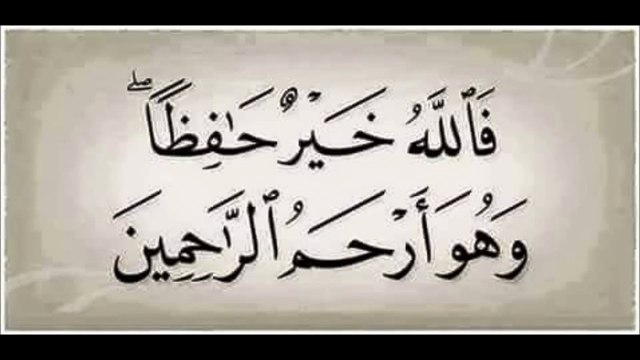 فَٱللَّهُ خَيْرٌ حَـٰفِظًاۖ
وَهُوَ أَرْحَمُ ٱلرَّٰحِمِينَ